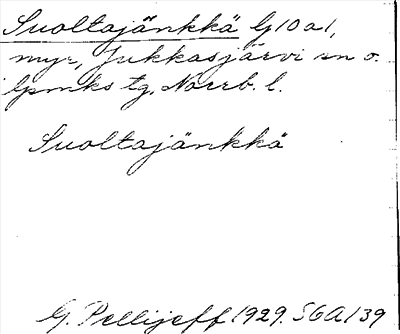 Suoltajänkkä G10a1,
myr, Jukkasjärvi sn o.
lpmks tg, Norrb. l.
Suoltajänkkä
G. Pellijeff 1929. SGA 139